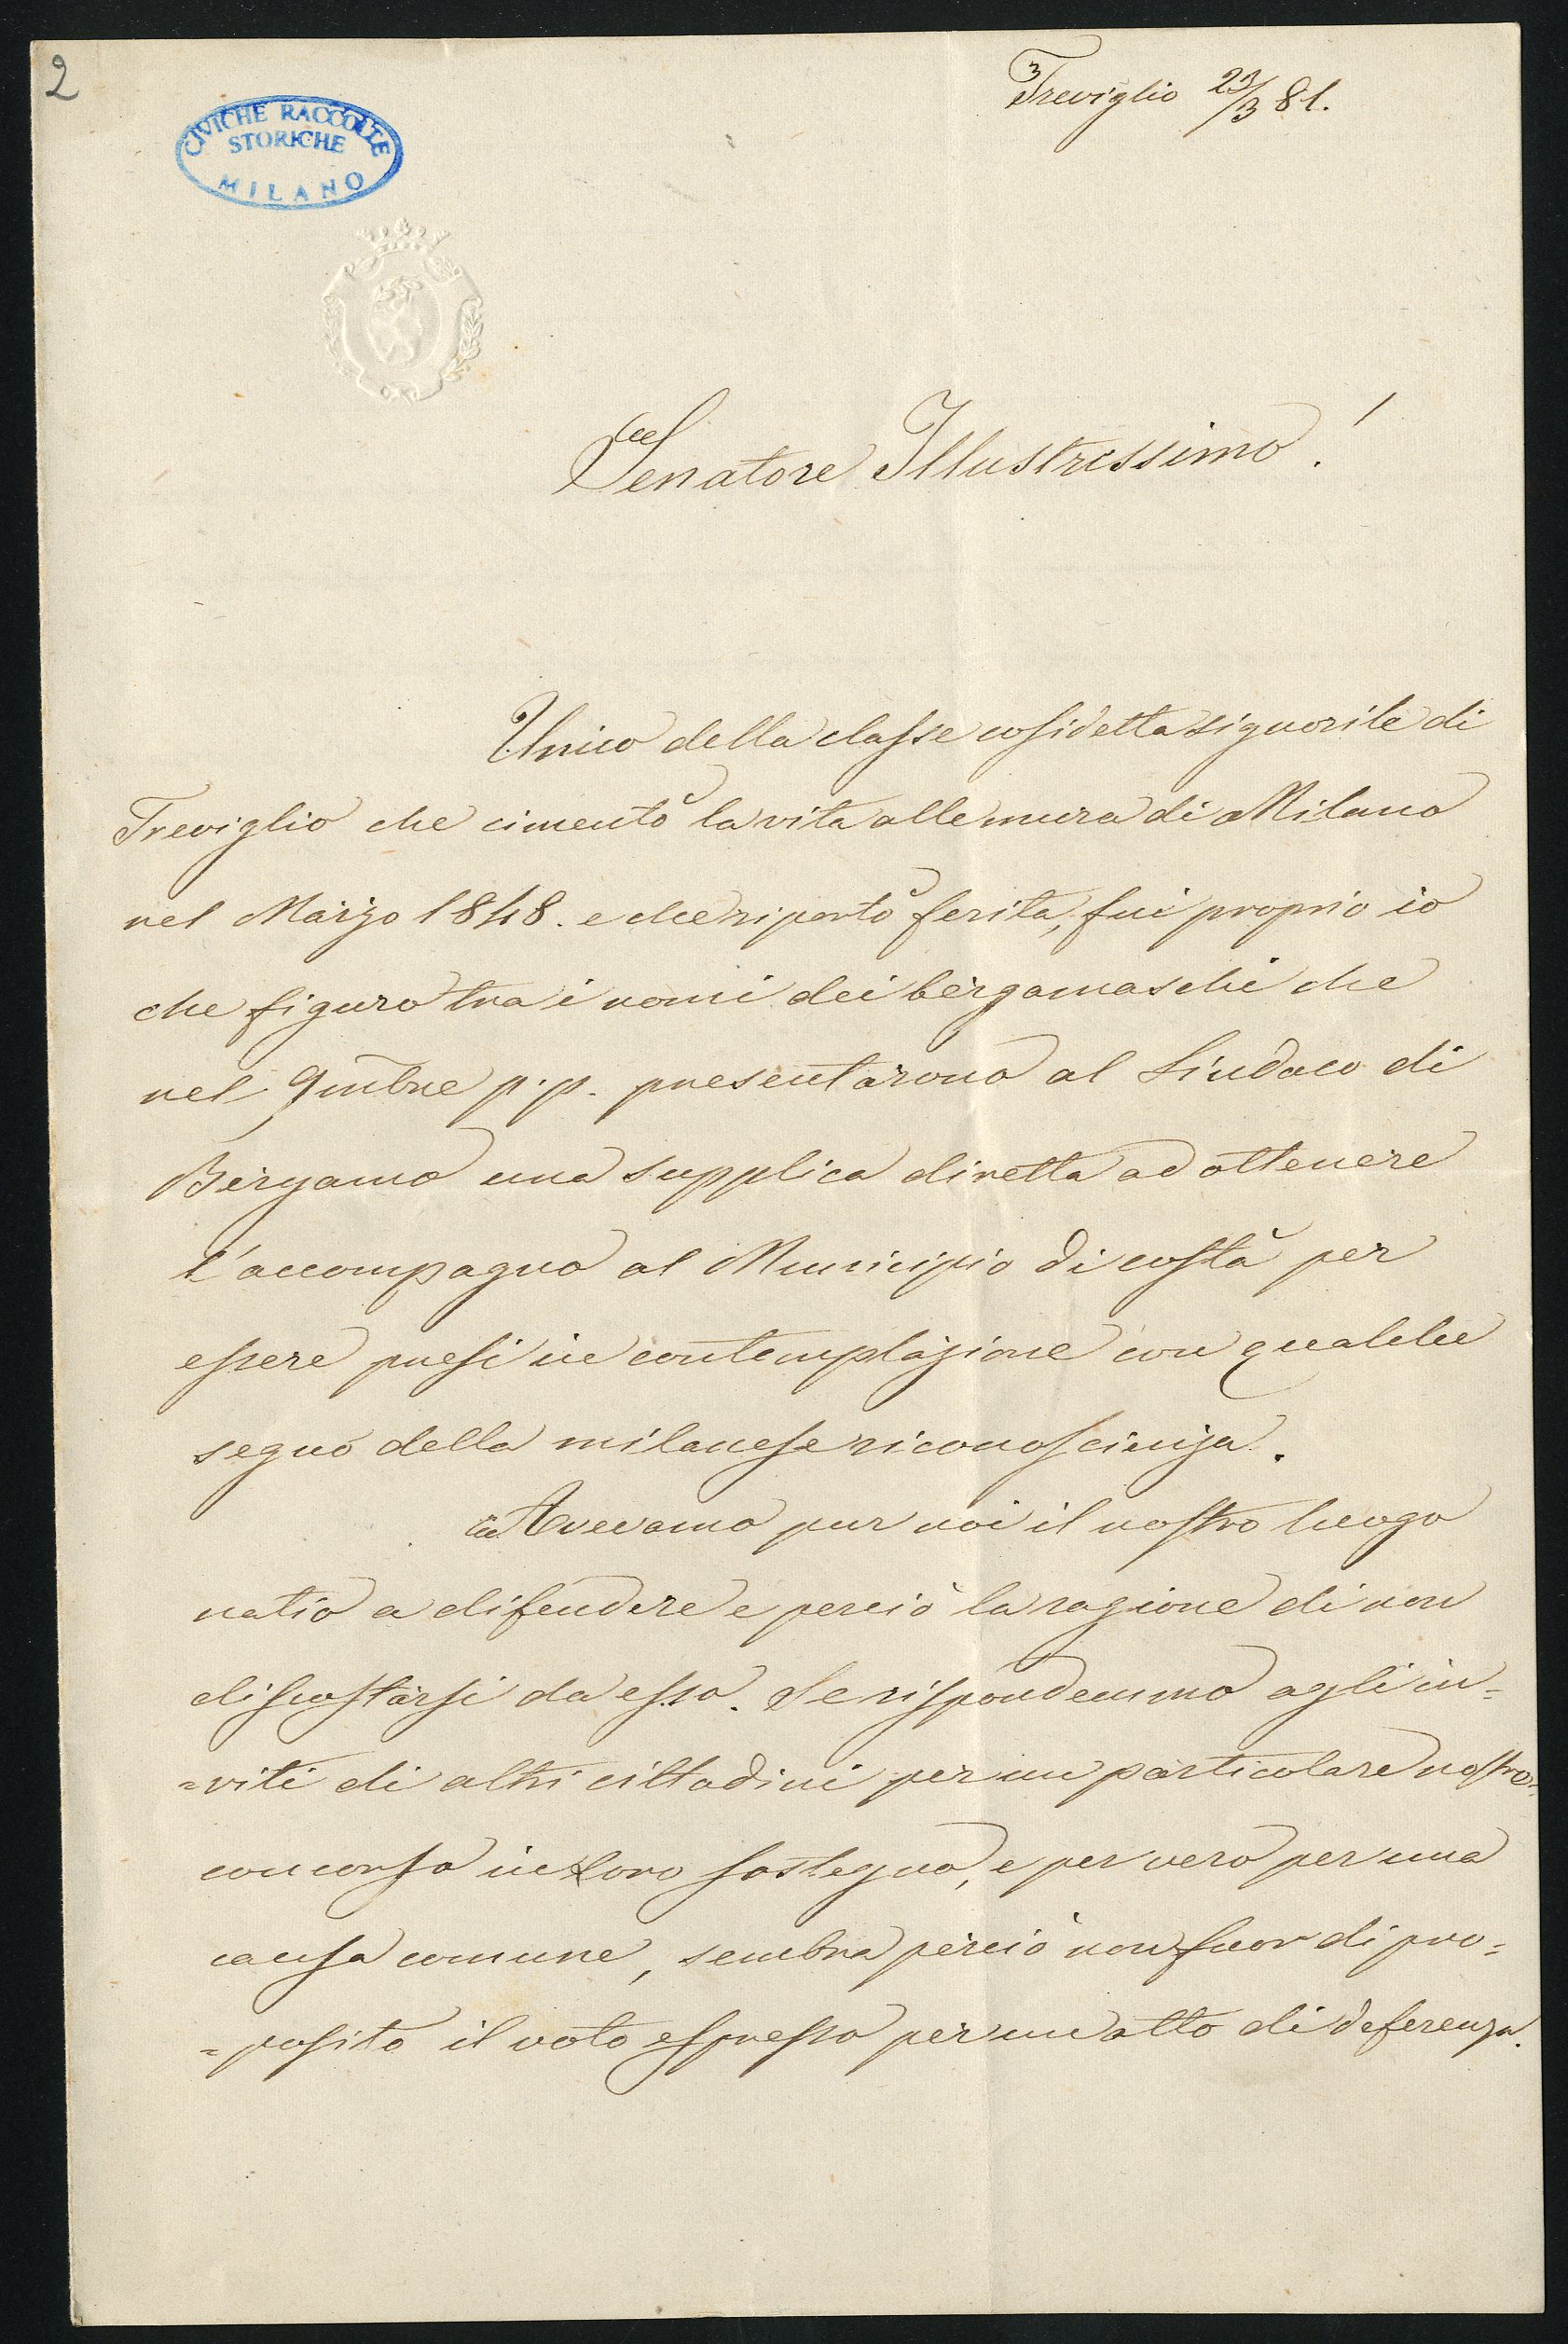 2
Treviglio 23/3 81.
CIVICHE RACCOLTE
STORICHE
MILANO
Senatore Illustrissimo!
Unico della classe cosidetta signorile di
Treviglio che cimentò la vita alle mura di Milano
nel Marzo 1848. e che riportò ferita, fui proprio io
che figuro tra i nomi dei bergamaschi che
nel 9mbre p.p. presentarono al Sindaco di
Bergamo una supplica diretta ad ottenere
l'accompagno al Municipio di costà per
essere presi in contemplazione con qualche
segno della milanese riconoscienza.
Avevamo pur noi il nostro luogo
natio a difendere e perciò la ragione di non
discostarsi da esso. Se rispondemmo agli in=
=viti di altri cittadini per un particolare nostro
concorso in loro sostegno, e per vero per una
causa comune, sembra perciò non fuor di pro=
=posito il voto espresso per un atto di deferenza.